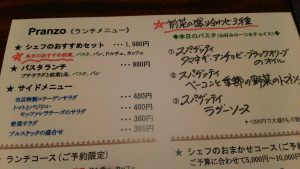 Pranzo (ランチメニュー)
★シェフのおすすめセット ･･･ 1,980円
本日のおすすめ前菜、パスタ、パン、ドルチェ、カフェ
★パスタランチ ･･･ 1,380円
プチサラダと前菜1品、パスタ、パン、カフェ
★サイドメニュー
当店特製シーザーサラダ 480円
トマトとバジリコ、
モッツァレラチーズのサラダ 480円
野菜サラダ 380円
ブルスケッタの盛合せ 380円
★ランチコース(ご予約限定)
★前菜の盛り合わせ3種
◆本日のパスタ(お好みの一つをチョイス)
① スパゲッティ
タマネギ、アンチョビ・ブラックオリーブ
のオイル
② スパゲッティ
ベーコンと季節の野菜のトマト
③ スパゲッティ
ラグーソース
★シェフのおまかせコース(ご
ご予算に合わせて5,000円〜10,000円